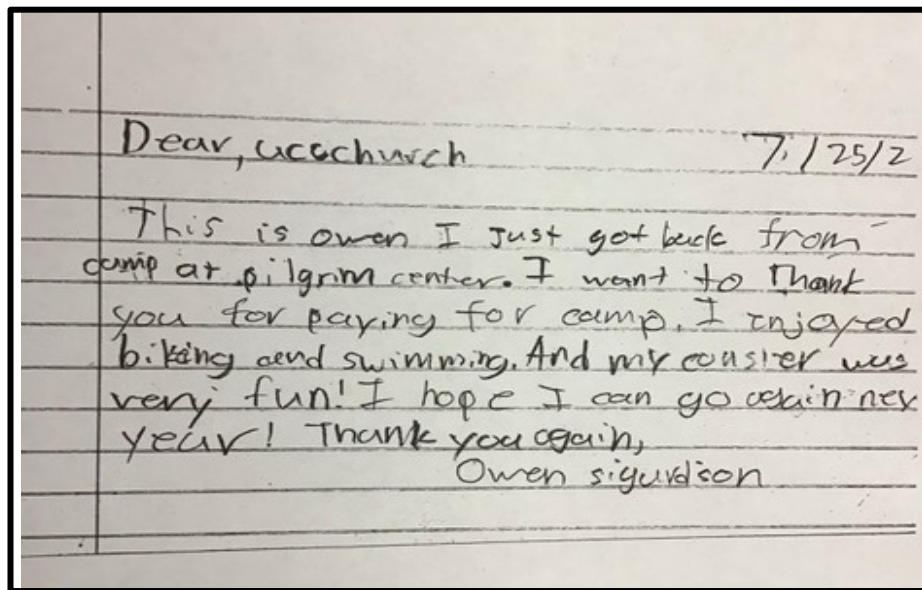 Dear, uccchurch 7/25/2
This is owen I Just got back from
camp at pilgrim center. I want to Thank
you for paying for camp. I injoyed
biking and swimming. And my consler was
very fun! I hope I can go again nex
year! Thank you again,
Owen sigurdson